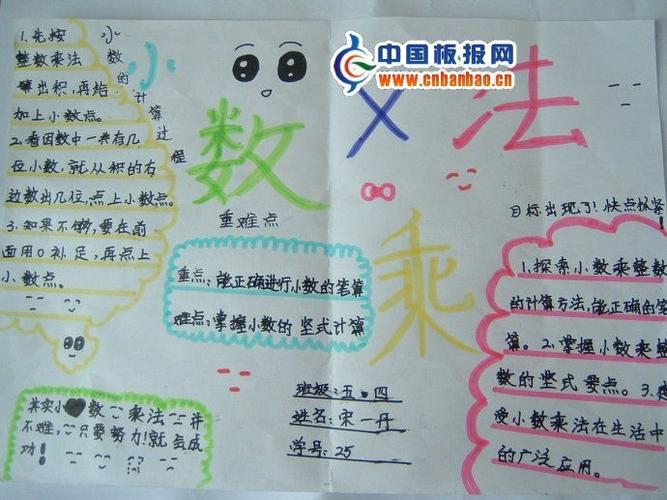 中国板报网
www.cnbanbao.cn
小数乘法
小数的计算过程
1.先按
整数乘法
算出积,再给
加上小数点。
2.看因数中一共有几
位小数,就从积的右
边数出几位,点上小数点。
3.如果不够,要在前
面用0补足,再点上
小数点。
重难点
重点:能正确进行小数的笔算
难点:掌握小数的竖式计算
目标出现了!快点抓紧!
1.探索小数乘整数
的计算方法,能正确的笔
算。2.掌握小数乘整
数的竖式要点。3.
受小数乘法在生活中
的广泛应用。
其实小数乘法并
不难,只要努力!就会成
功!
班级:五.四
姓名:宋一丹
学号:25